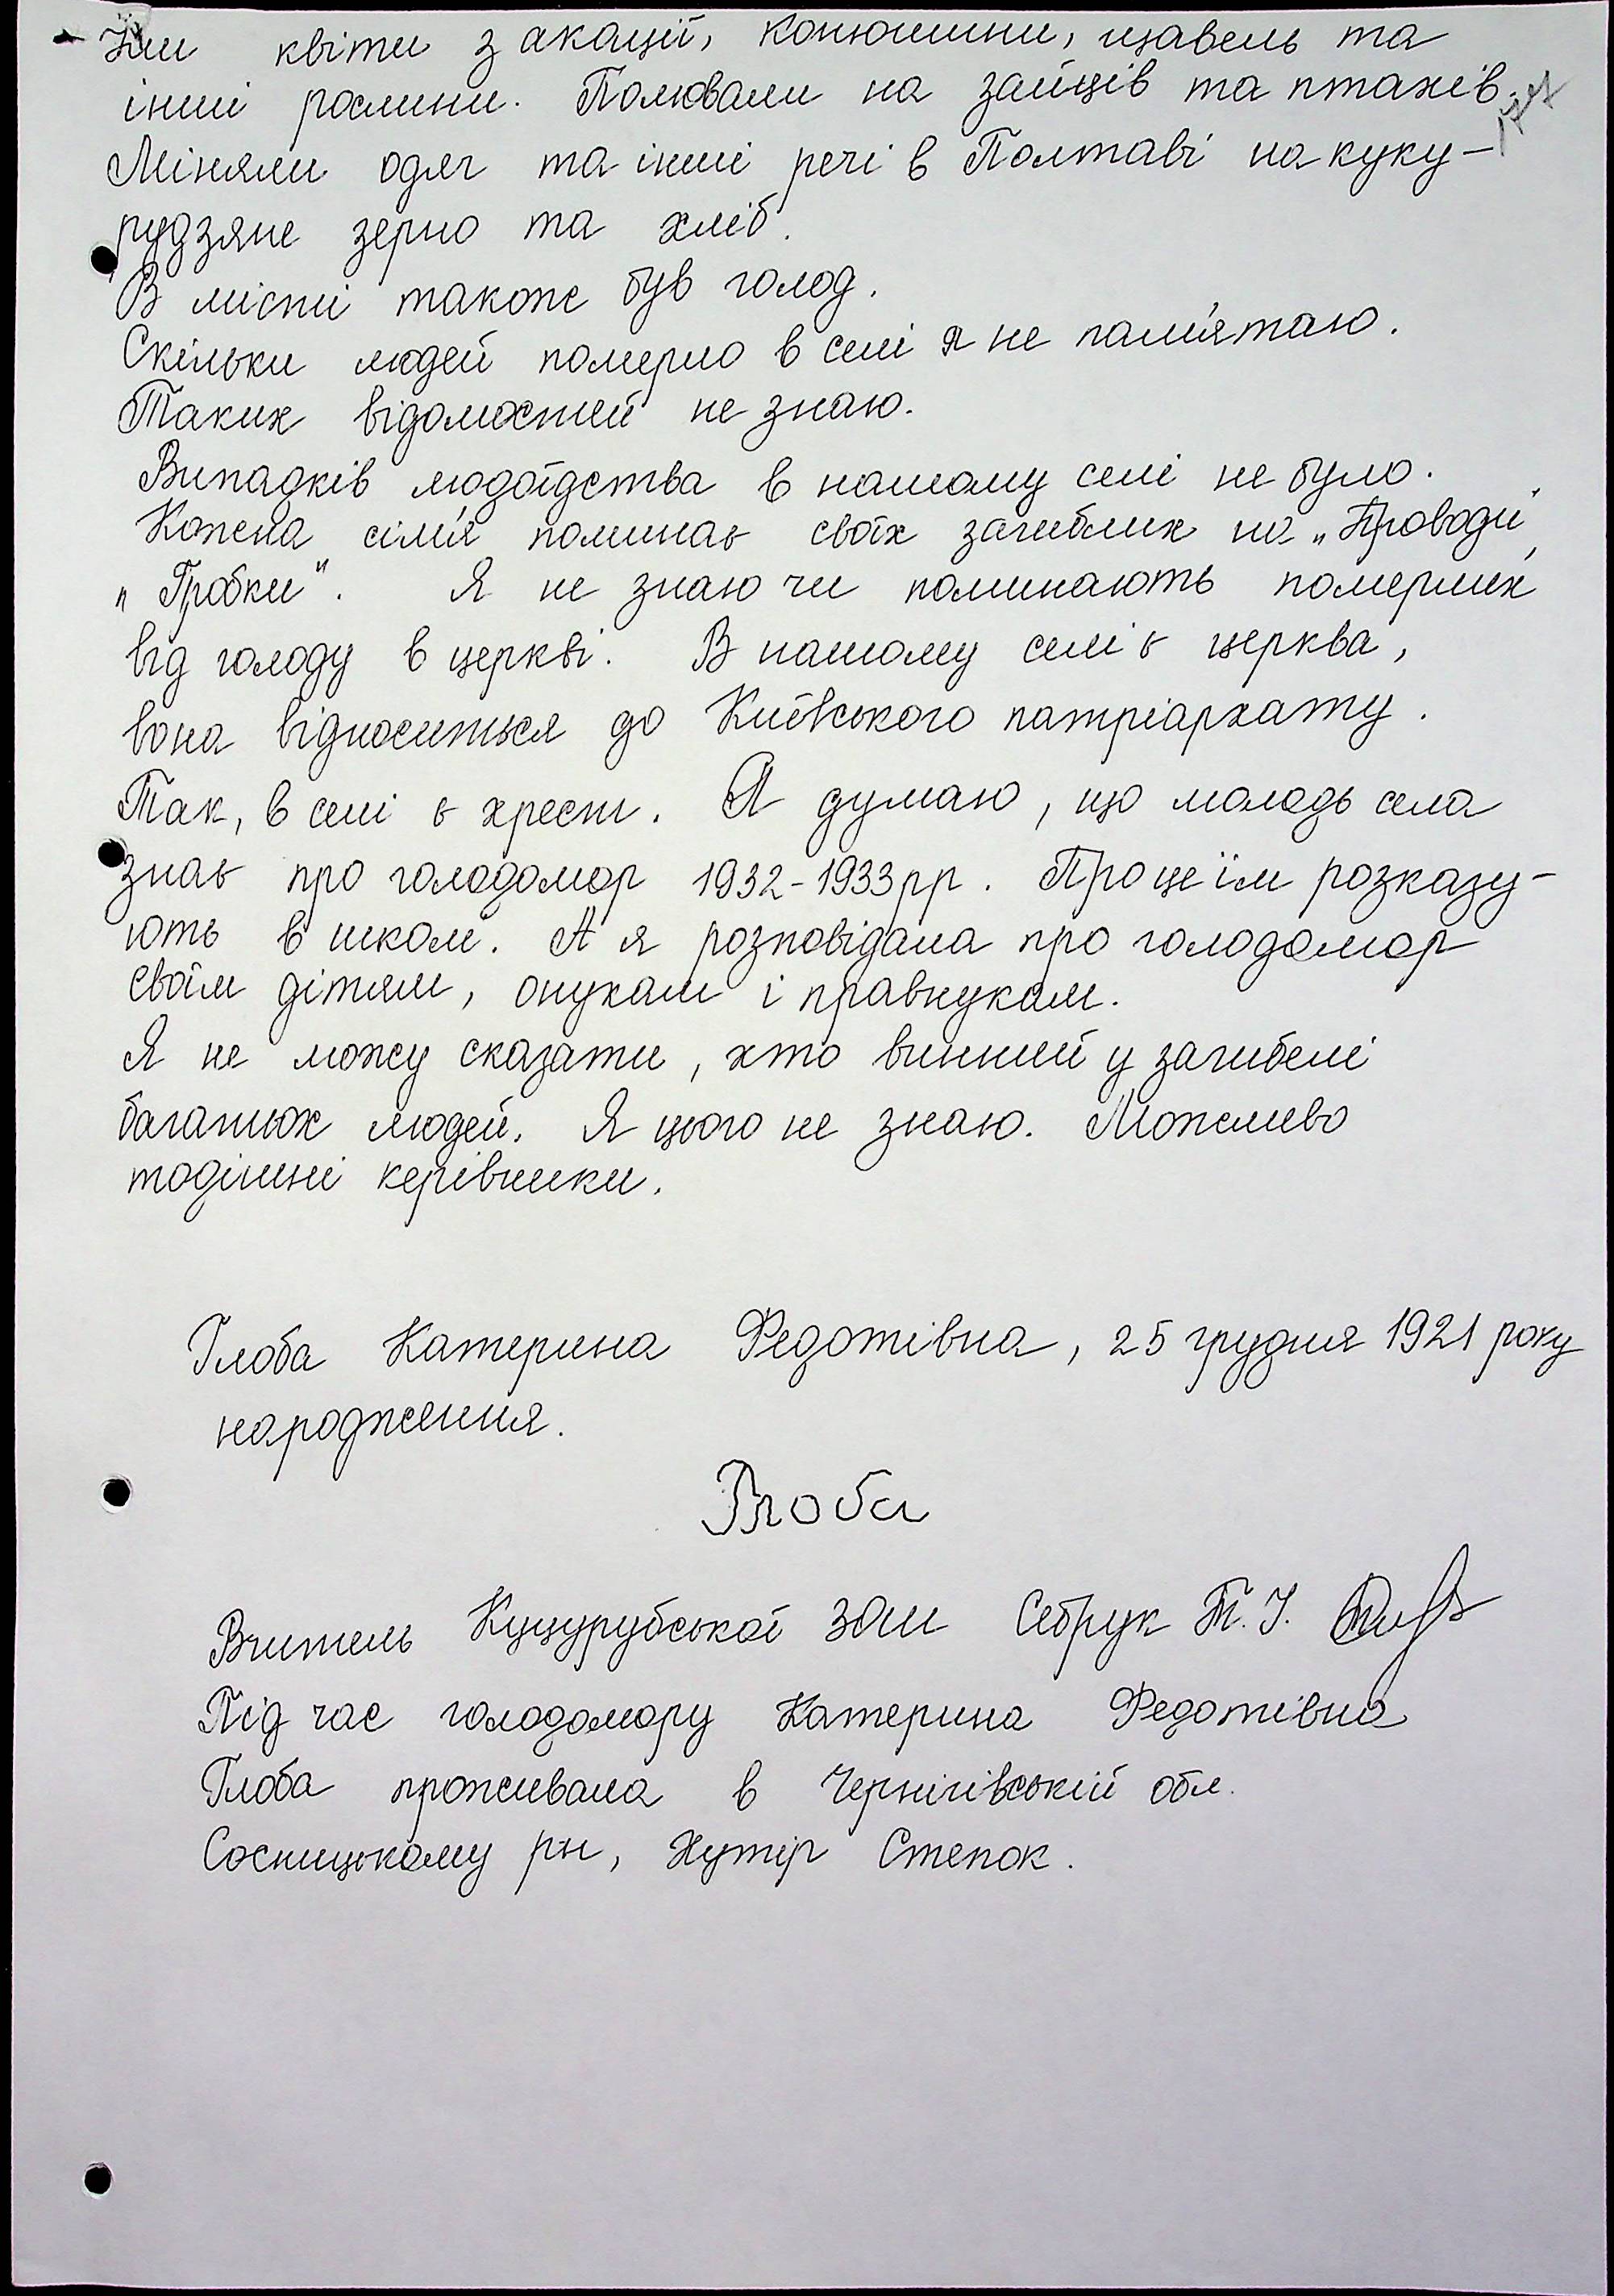 - Їли квіти з акації, конюшини, щавель та
інші рослини. Полювали на зайців та птахів.
Міняли одяг та інші речі в Полтаві на куку-
рудзяне зерно та хліб.
В місті також був голод.
Скільки людей померло в селі я не пам'ятаю.
Таких відомостей не знаю.
Випадків людоїдства в нашому селі не було.
Кожна сім'я поминає своїх загиблих на „Проводи",
„Гробки". Я не знаю чи поминають померлих
від голоду в церкві. В нашому селі є церква,
вона відноситься до Київського патріархату.
Так, в селі є хрест. Я думаю, що молодь села
знає про голодомор 1932-1933 рр. Про це їм розказу-
ють в школі. А я розповідала про голодомор
своїм дітям, онукам і правнукам.
Я не можу сказати, хто винний у загибелі
багатьох людей. Я цього не знаю. Можливо
тодішні керівники.
Глоба Катерина Федотівна, 25 грудня 1921 року
народження.
Глоба
Вчитель Куцурубської ЗОШ Себрук Т.І.
Під час голодомору Катерина Федотівна
Глоба проживала в Чернігівській обл.
Сосницькому р-н, Хутір Степок.